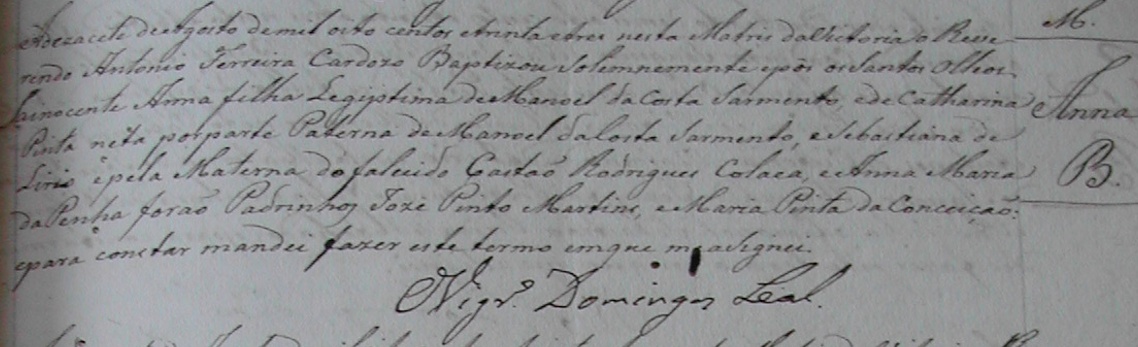 M.
e dezacete de Agosto de mil oito centos etrinta etres nesta Matris da Victoria o Reve
rendo Antonio Ferreira Cardozo Baptizou Solemnemente epôs os Santos Olleos
a inocente Anna filha Legiptima de Manoel da Costa Sarmento, e de Catharina
Pinta neta por parte Paterna de Manoel da Costa Sarmento, e Sebastiana de
Lirio e pela Materna do falecido Gastaõ Rodrigues Colaça, e Anna Maria
da Penha foraõ Padrinhos Jozé Pinto Martins, e Maria Pinta da Conceiçaõ:
epara constar mandei fazer este termo emque me asignei.
Vigrº. Domingos Leal.
Anna
B.